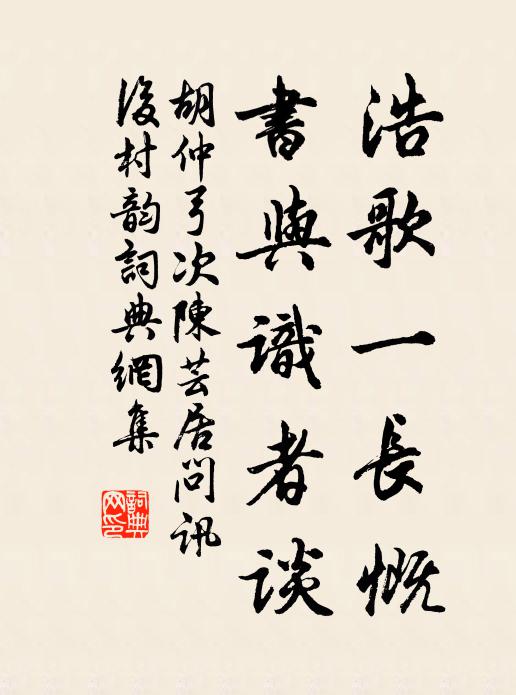 浩歌一長慨
書與識者談
胡仲弓次陳芸居問訊
後村韵詞典網集
詞典
网印